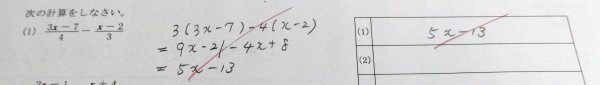 次の計算をしなさい。
(1) \frac{3x-7}{4} - \frac{x-2}{3}
3(3x-7)-4(x-2)
= 9x-21-4x+8
= 5x-13
(1) 5x-13
(2)